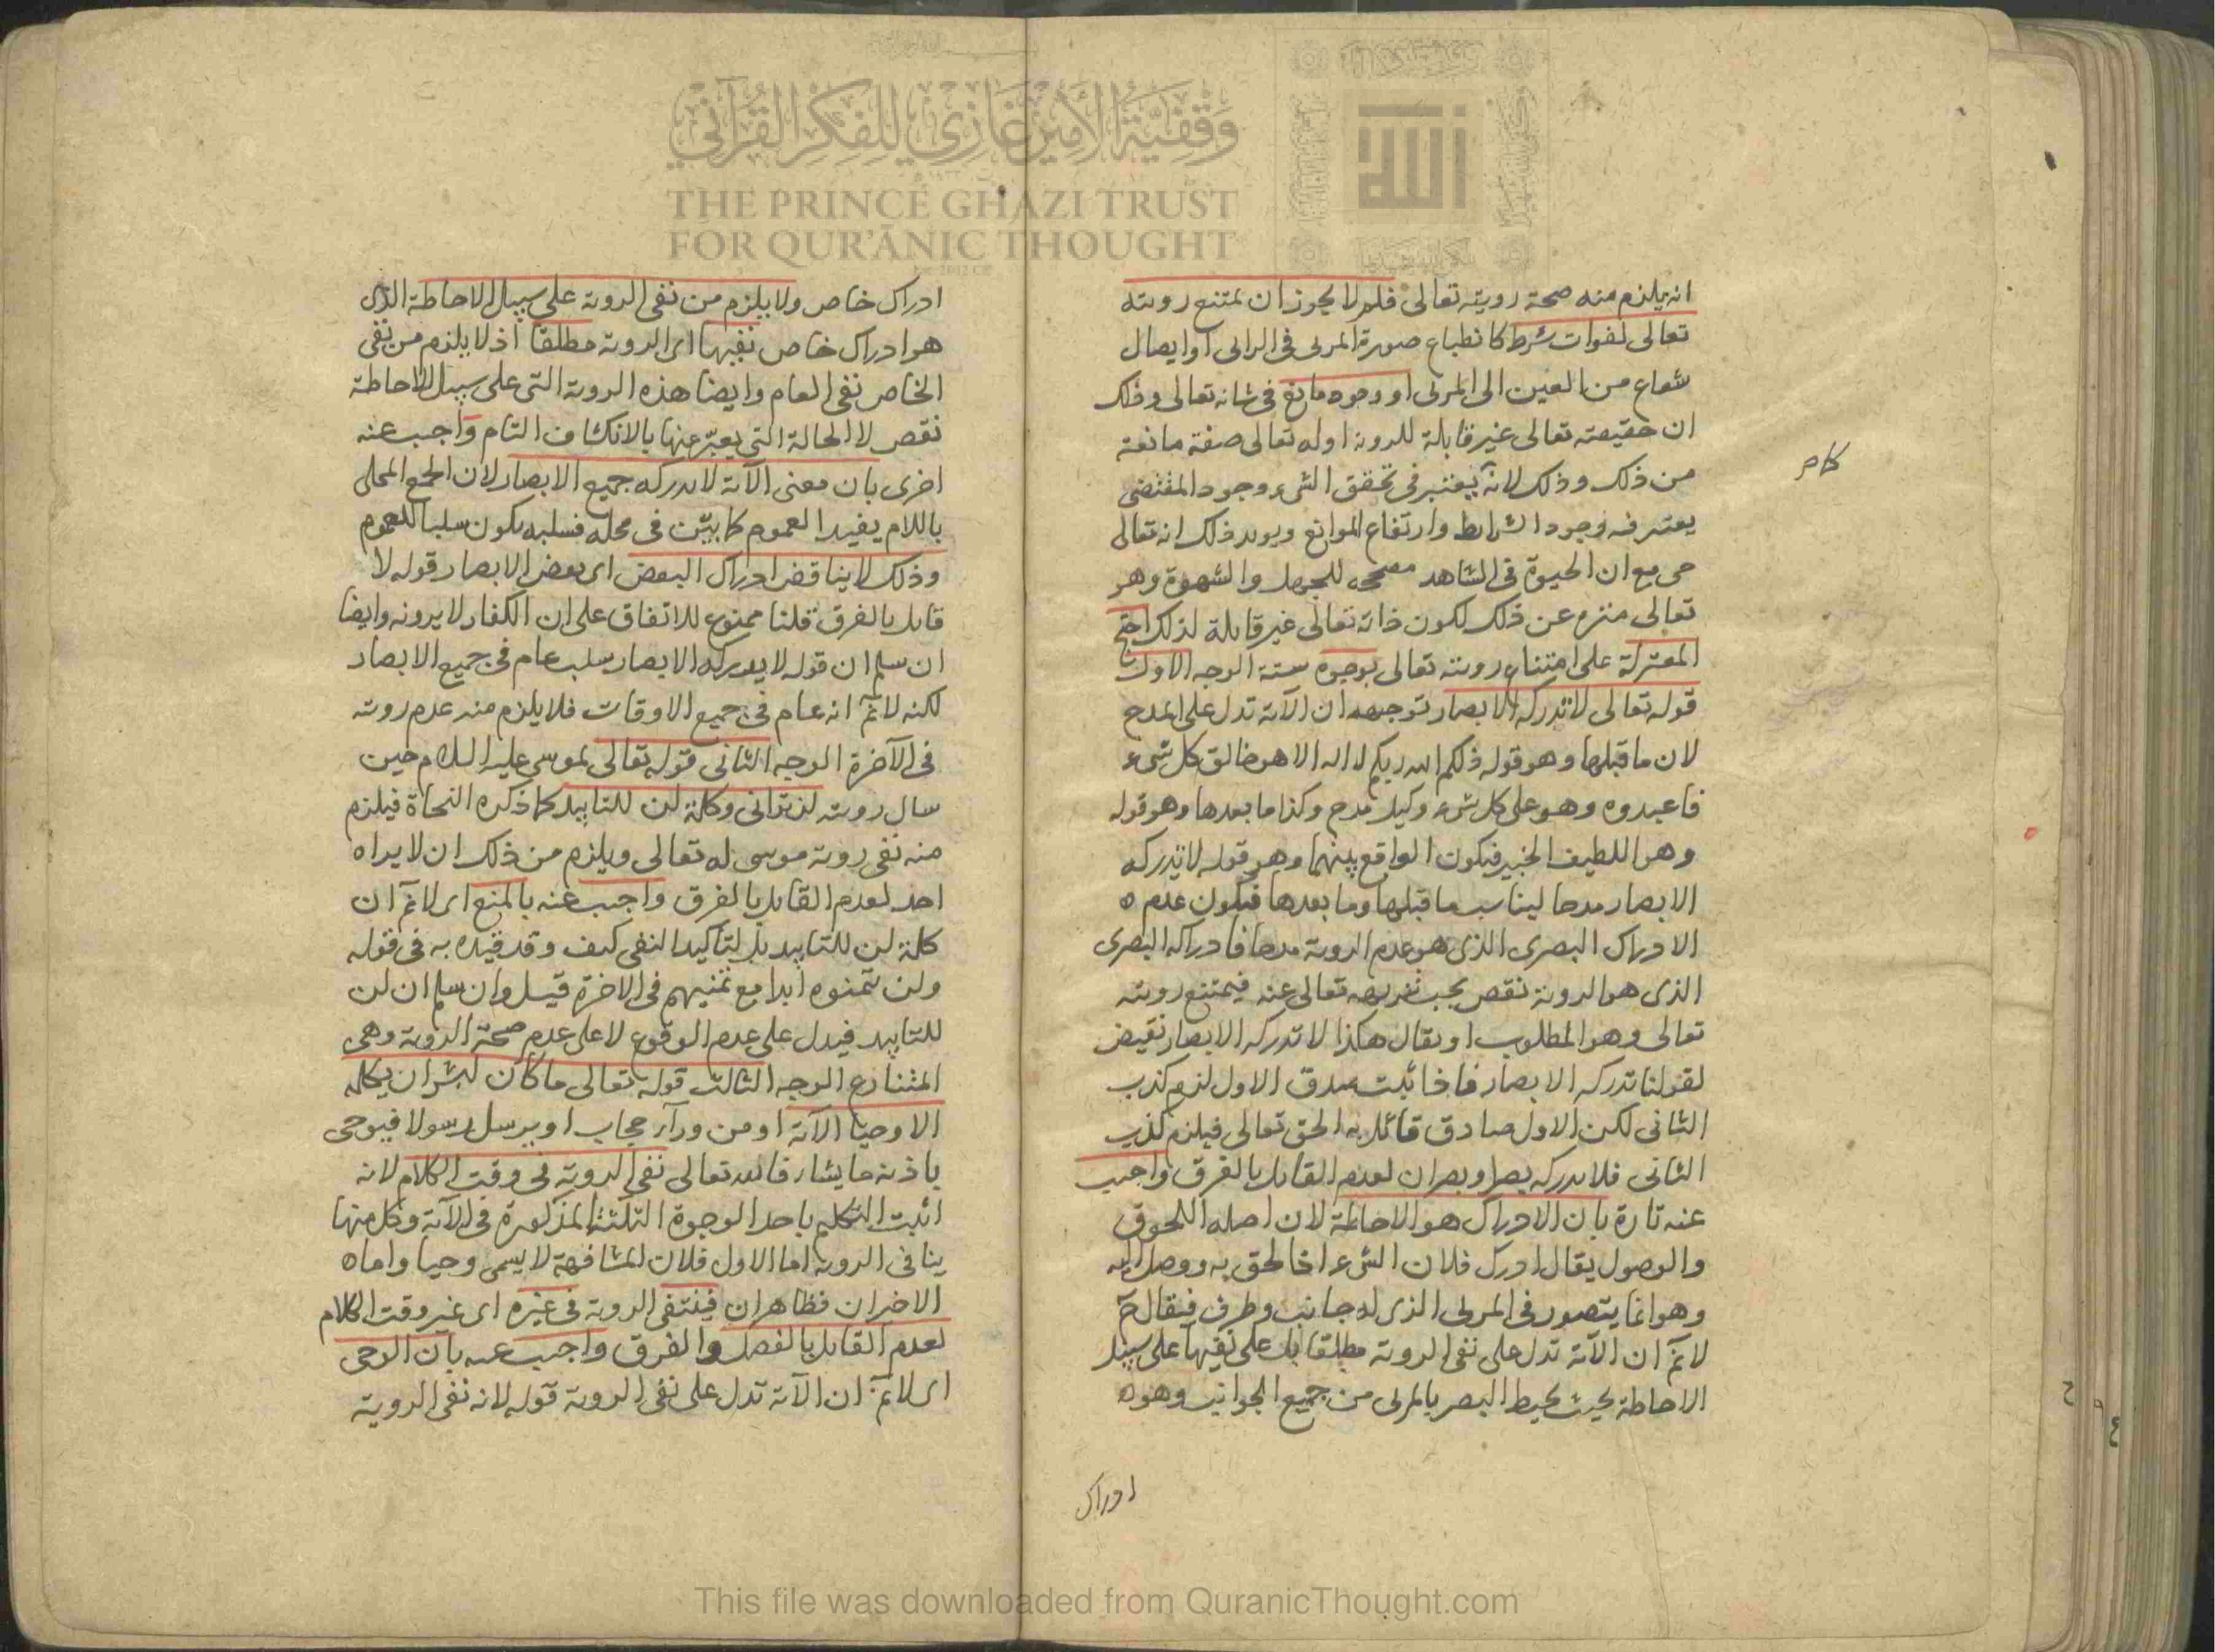 وَقْفِيَّة الأَمِير غَازِي لِلْفِكْرِ القُرْآنِي
THE PRINCE GHAZI TRUST
FOR QUR'ĀNIC THOUGHT
انه يلزم منه صحة رويته تعالى فلم لا يجوز ان يمتنع رويته
تعالى لفوات شرط كانطباع صورة المرئى فى الرائى او ايصال
شعاع من العين الى المرئى او وجود مانع فى شانه تعالى وذلك
ان حقيقته تعالى غير قابلة للروية او له تعالى صفة مانعة
من ذلك وذلك لانه يعتبر فى تحقق الشىء وجود المقتضى
يعتبر فيه وجود الشرايط وارتفاع الموانع ويويد ذلك انه تعالى
حى مع ان الحيوة فى الشاهد مصححه للجهل والشهوة وهو
تعالى منزه عن ذلك لكون ذاته تعالى غير قابلة لذلك احتج
المعتزلة على امتناع رويته تعالى بوجوه ستة الوجه الاول
قوله تعالى لا تدركه الابصار توجيهه ان الآية تدل على المدح
لان ما قبلها وهو قوله ذلكم الله ربكم لا اله الا هو خالق كل شىء
فاعبدوه وهو على كل شىء وكيل مدح وكذا ما بعدها وهو قوله
وهو اللطيف الخبير فيكون الواقع بينهما وهو قوله لا تدركه
الابصار مدحا ليناسب ما قبلها وما بعدها فيكون عدم ه
الادراك البصرى الذى هو عدم الروية مدحا فادراكه البصرى
الذى هو الروية نقص يجب تنزيهه تعالى عنه فيمتنع رويته
تعالى وهو المطلوب او يقال هكذا لا تدركه الابصار نقيض
لقولنا تدركه الابصار فاذا ثبت صدق الاول لزم كذب
الثانى لكن الاول صادق قائل به الحق تعالى فيلزم كذب
الثانى فلا يدركه بصر او بصران لعدم القايل بالفرق واجيب
عنه تارة بان الادراك هو الاحاطة لان اصله اللحوق
والوصول يقال ادرك فلان الشىء اذا لحق به ووصل اليه
وهو انما يتصور فى المرئى الذى له جانب وطرف فيقال ح
لا نم ان الآية تدل على نفى الروية مطلقا بل على نفيها على سبيل
الاحاطة بحيث يحيط البصر بالمرئى من جميع الجوانب وهو ه
ادراك
ادراك خاص ولا يلزم من نفى الروية على سبيل الاحاطة الذى
هو ادراك خاص نفيها اى الروية مطلقا اذ لا يلزم من نفى
الخاص نفى العام وايضا هذه الروية التى على سبيل الاحاطة
نقص لا الحالة التى يعبّر عنها بالانكشاف التام واجيب عنه
اخرى بان معنى الآية لا يدركه جميع الابصار لان الجمع المحلى
باللام يفيد العموم كما بيّن فى محله فسلبه يكون سلبا للعموم
وذلك لا يناقض ادراك البعض اى بعض الابصار قوله لا
قايل بالفرق قلنا ممنوع للاتفاق على ان الكفار لا يرونه وايضا
ان سلم ان قوله لا يدركه الابصار سلب عام فى جميع الابصار
لكنه لا نم انه عام فى جميع الاوقات فلا يلزم منه عدم رويته
فى الآخرة الوجه الثانى قوله تعالى لموسى عليه السلام حين
سال رويته لن ترانى وكلمة لن للتابيد كما ذكره النحاة فيلزم
منه نفى روية موسى له تعالى ويلزم من ذلك ان لا يراه
احد لعدم القايل بالفرق واجيب عنه بالمنع اى لا نم ان
كلمة لن للتابيد بل لتاكيد النفى كيف وقد قيده به فى قوله
ولن يتمنوه ابدا مع تمنيهم فى الاخرة قيل وان سلم ان لن
للتابيد فيدل على عدم الوقوع لا على عدم صحة الروية وهى
المتنازع الوجه الثالث قوله تعالى ما كان لبشر ان يكلمه
الا وحيا الآية او من ورآء حجاب او يرسل رسولا فيوحى
باذنه ما يشاء فالله تعالى نفى الروية فى وقت الكلام لانه
اثبت التكليم باحد الوجوه الثلثة المذكورة فى الآية وكل منها
ينافى الروية اما الاول فلان المشافهة لا يسمى وحيا واما ه
الاخران فظاهران فينتفى الروية فى غيره اى غير وقت الكلام
لعدم القايل بالفصل والفرق واجيب عنه بان الوحى
اى لا نم ان الآية تدل على نفى الروية قوله لانه نفى الروية
This file was downloaded from QuranicThought.com